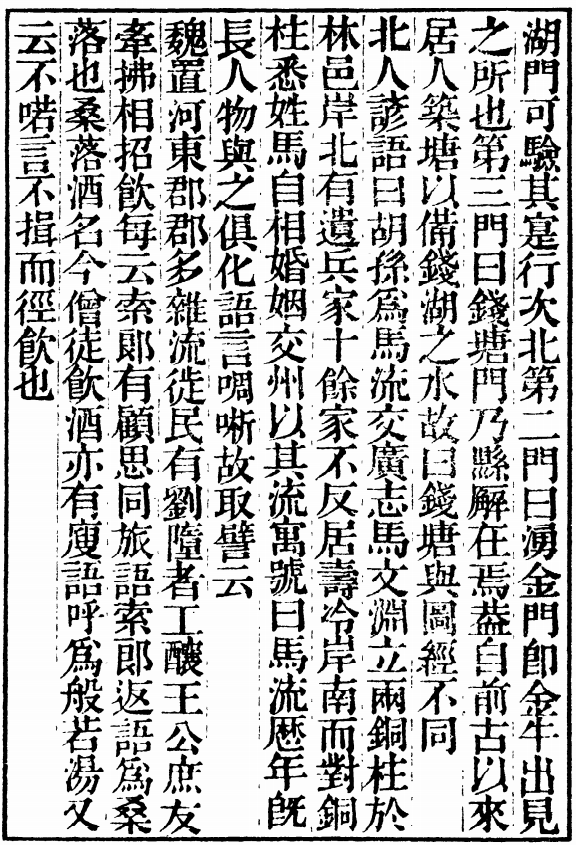 湖門可驗其寔行次北第二門曰湧金門即金牛出見
之所也第三門曰錢塘門乃縣解在焉葢自前古以來
居人築塘以備錢湖之水故曰錢塘與圖經不同
北人諺語曰胡孫爲馬流交廣志馬文淵立兩銅柱於
林邑岸北有遺兵家十餘家不反居壽冷岸南而對銅
柱悉姓馬自相婚姻交州以其流寓號曰馬流厯年旣
長人物與之俱化語言啁哳故取譬云
魏置河東郡郡多雜流徙民有劉隨者工釀王公庶友
牽拂相招飲每云索郎有顧思同旅語索郎返語爲桑
落也桑落酒名今僧徒飲酒亦有廋語呼爲般若湯又
云不喏言不揖而徑飲也